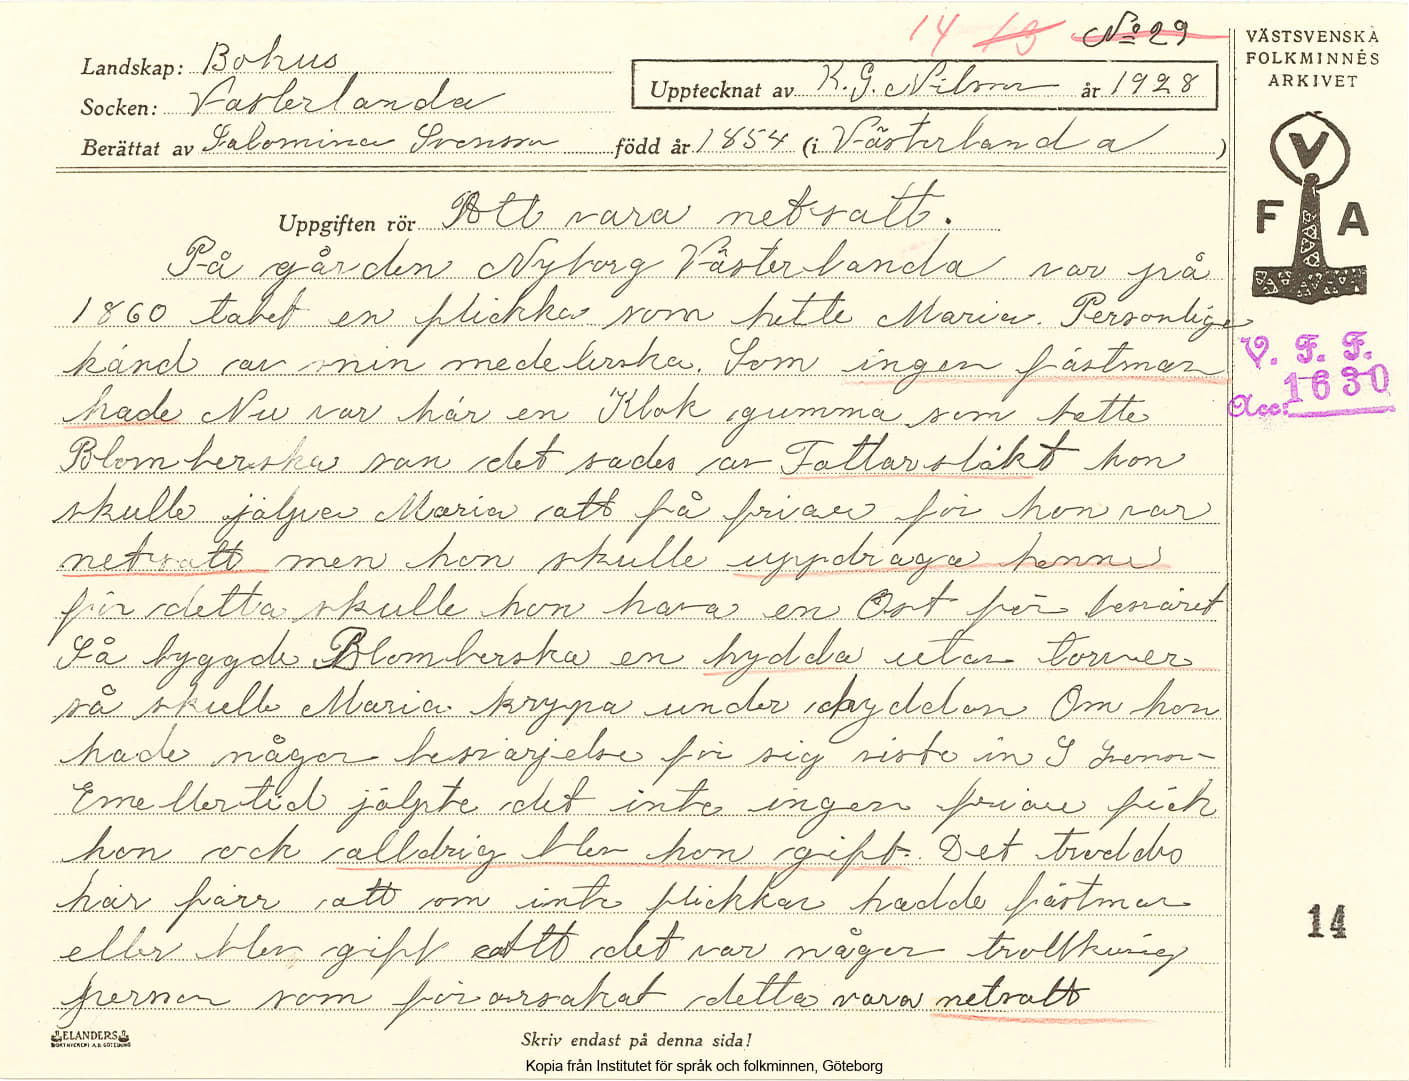 14 13 No 29
Landskap: Bohus
Socken: Vasterlanda
Upptecknat av K. G. Nilson år 1928
Berättat av Salomina Svenson född år 1854 (i Västerlanda )
VÄSTSVENSKA
FOLKMINNES
ARKIVET
V
F A
Uppgiften rör Att vara netsatt.
På gården Nyborg Västerlanda var på
1860 talet en flickka som hette Maria. Personlige
känd av min medelerska. Som ingen fästman
hade Nu var här en Klok gumma som hette
Blomberska van det sades av Fattarsläkt hon
skulle jälpa Maria att få friare för hon var
netsatt men hon skulle uppdraga henne
för detta skulle hon hava en Ost för besväret
Så byggde Blomberska en hydda utan torver
så skulle Maria krypa under hyddan Om hon
hade någon besvärjelse för sig viste in S Svenson
Emellertid jälpte det inte ingen friare fick
hon och alldrig blev hon gift. Det troddes
här förr att om inte flickkan hadde fästman
eller blev gift att det var någon trollkunig
person som för orsakat detta vara netsatt
V. F. F.
Acc: 1630
14
ELANDERS
BOKTRYCKERI A.B. GÖTEBORG
Skriv endast på denna sida!
Kopia från Institutet för språk och folkminnen, Göteborg